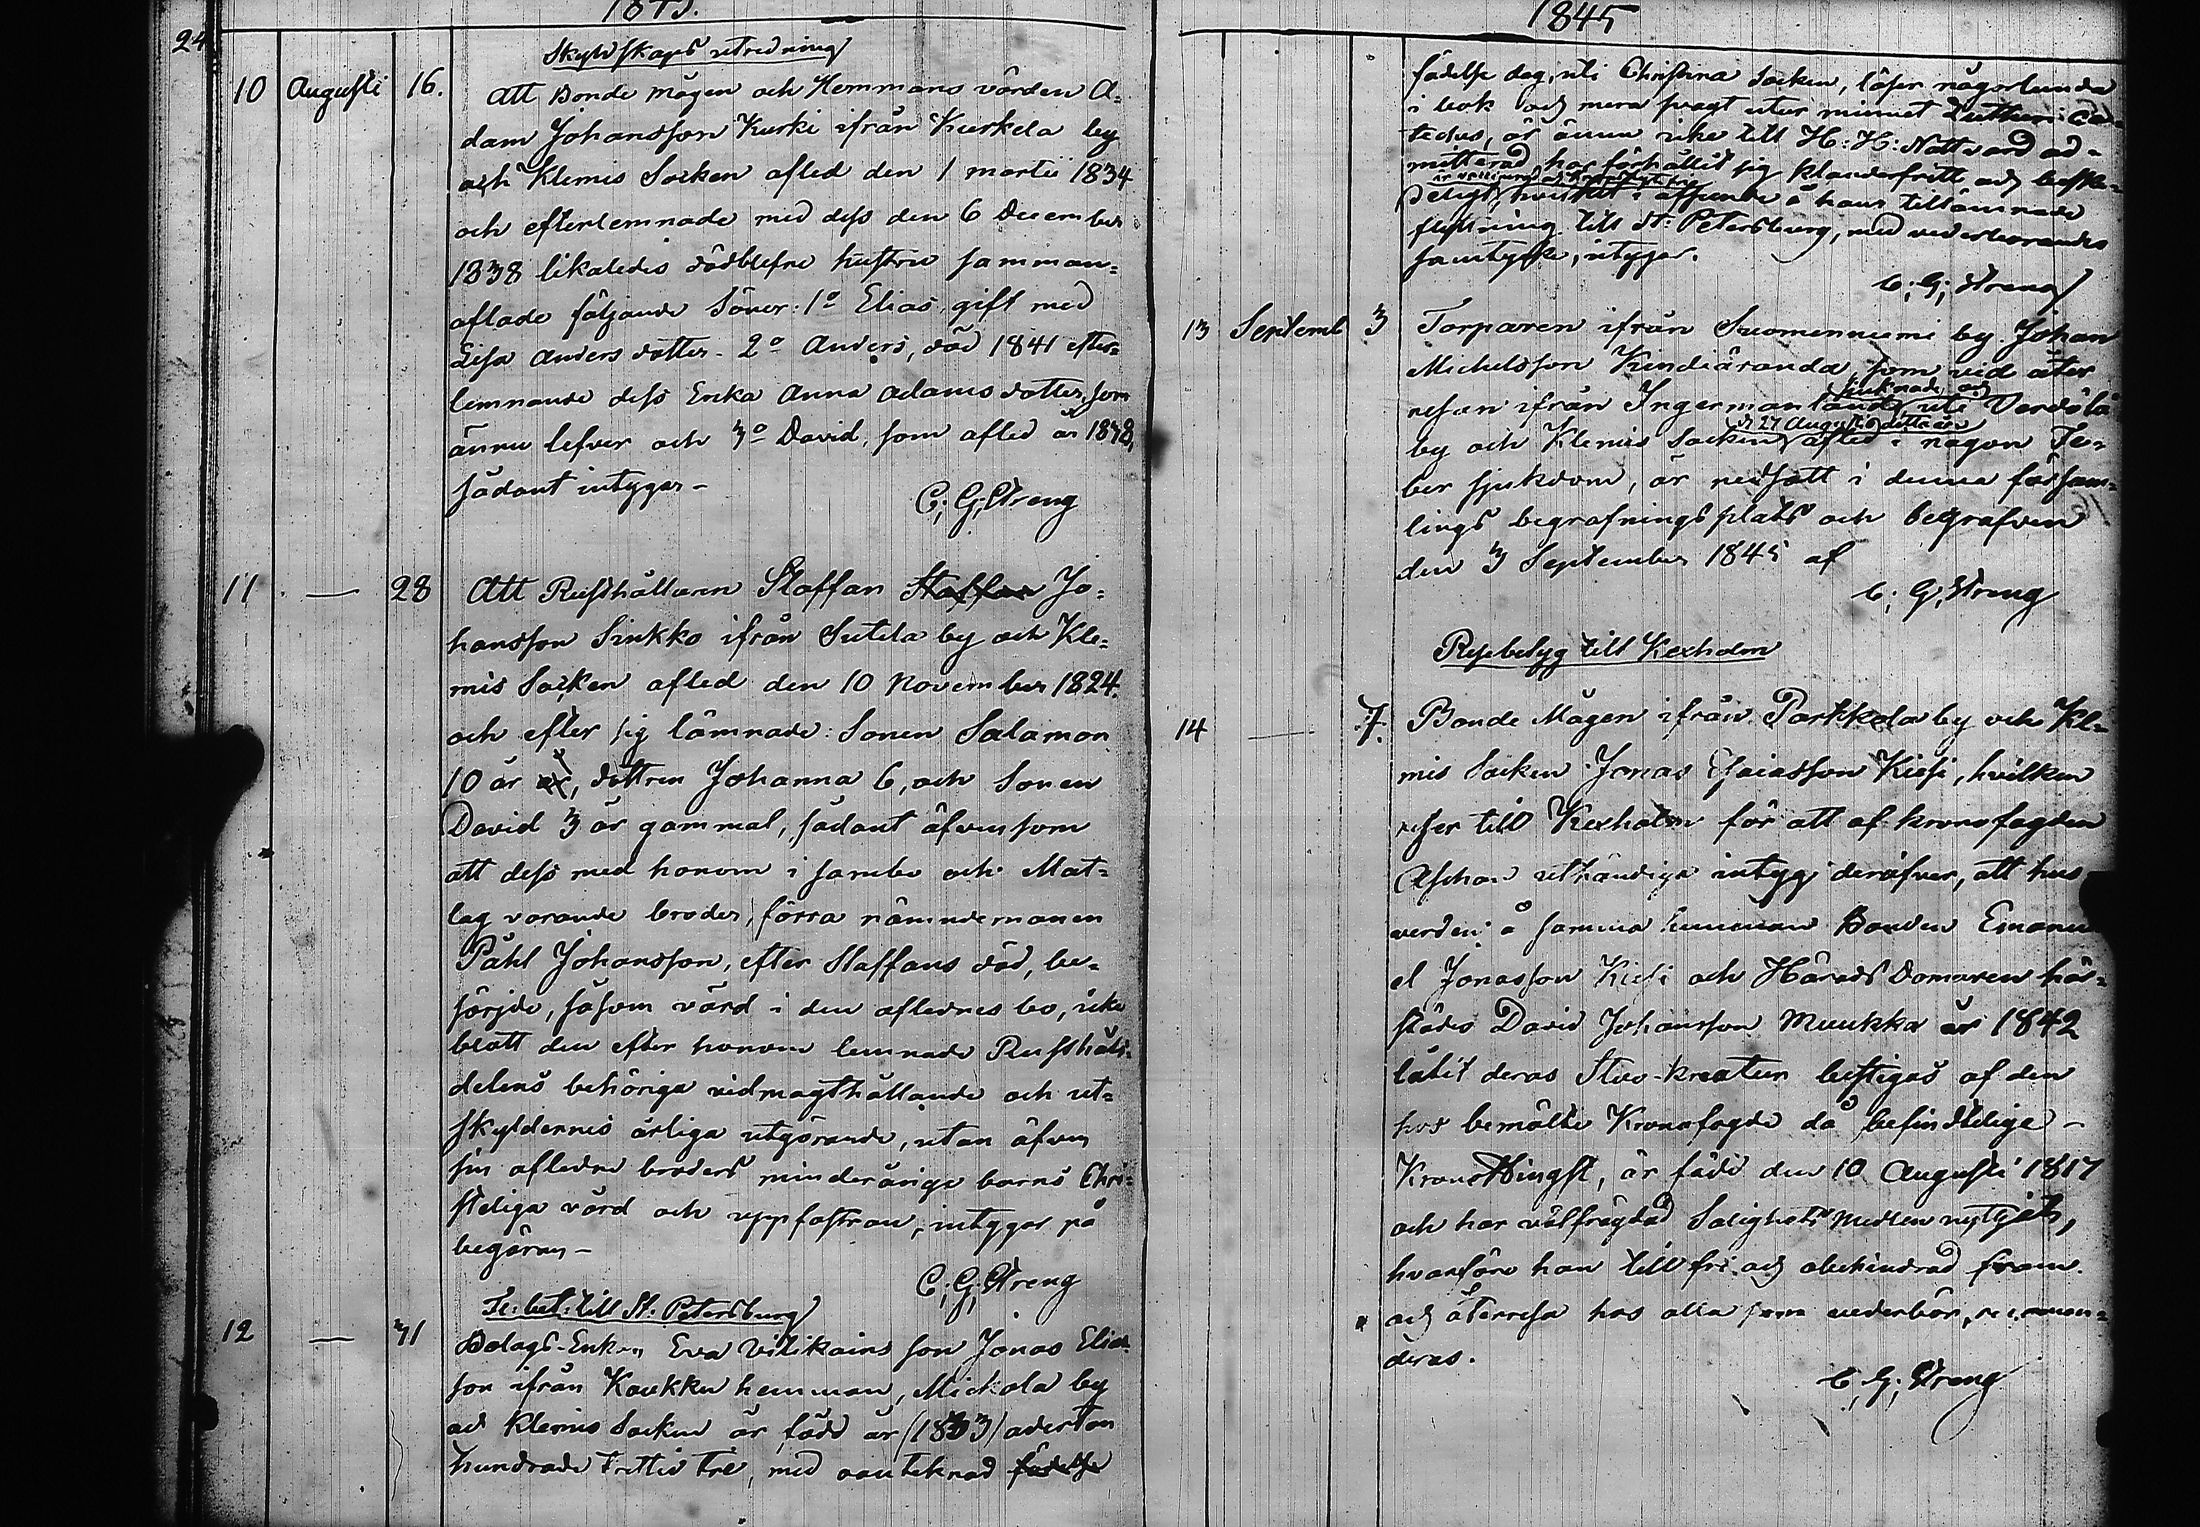 1845.
24
Skyldskaps utredning
10 Augusti 16. Att Bonde mågen och Hemmans vården A-
dam Johansson Kurki ifrån Kurkela by
och Klemis Socken afled den 1 martii 1834
och efterlemnade med dess den 6 December
1838 likaledes dödblefne hustru samman-
aflade följande Söner: 1o Elias, gift med
Lisa Anders dotter. 2o Anders, död 1841 efter-
lemnande dess Enka Anna Adams dotter, som
ännu lefver och 3o David, som afled år 1838,
sådant intygar -
C; G; Streng
11 — 28 Att Rusthållaren Staffan Staffan Jo-
hansson Sinkko ifrån Sutela by och Kle-
mis Socken afled den 10 November 1824.
och efter sig lämnade: Sonen Salamon
10 år, dottren Johanna 6, och Sonen
David 3 år gammal, sådant äfvensom
att dess med honom i sambo och Mat-
lag varande broder, förra nämndemannen
Påhl Johansson, efter Staffans död, be-
sörjde, såsom vård i den aflednes bo, icke
blott den efter honom lemnade Rusthålls-
delens behöriga vidmagthållande och ut-
skyldernes årliga utgörande, utan äfven
sin aflednes broders minderåriga barns Chri-
steliga vård och uppfostran, intygar på
begäran -
C; G; Streng
Fr: bet: till St. Petersburg
12 — 31 Bolags-Enkan Eva Vilikains son Jonas Elias-
son ifrån Koukku hemman, Mickola by
och Klemis Socken är född år (1833) aderton
hundrade trettio tre, med oantecknad födelse
1845
födelse dag, uti Christina Socken, läser någorlunda
i bok och mera svagt utur minnet Lutheri Ca-
teches, är ännu icke till H: H: Nattvard ad-
mitterad, har förhållit sig klanderfritt och beske-
deligt, hvilket i afseende å hans tillämnade
flyttning till St. Petersburg, med vederbörandes
samtycke, intygar.
C; G; Streng
13 Septemb 3 Torparen ifrån Suomenniemi by Johan
Michelsson Kindiäranda, som vid åter
sjuknade och
resan ifrån Ingermanland, uti Vardöla
d. 27 Augusti detta år
by och Klemis Socken afled i någon Fe-
ber sjukdom, är nedsatt i denna försam-
lings begrafningsplats och begrafven
den 3 September 1845 af
C; G; Streng
Resebetyg till Kexholm
14 — 7. Bonde Mågen ifrån Parkkola by och Kle-
mis Socken Jonas Esaiasson Kiesi, hvilken
reser till Kexholm för att af kronofogden
uthändiga intyg deröfver, att hus
verden å samma hemman Bonden Emanu
el Jonasson Kiesi och Härads Domaren här-
städes David Johansson Muukka år 1842
låtit deras Sto-kreatur bestigas af den
hos bemälte Kronofogde då befindtelige -
Krono Hingst, är född den 10 Augusti 1817
och har välfrägdad Salighets Medlen nyttjat,
hvarföre han till fri och obehindrad fram
och återresa hos alla som vederbör, recommen-
deras.
C; G; Streng